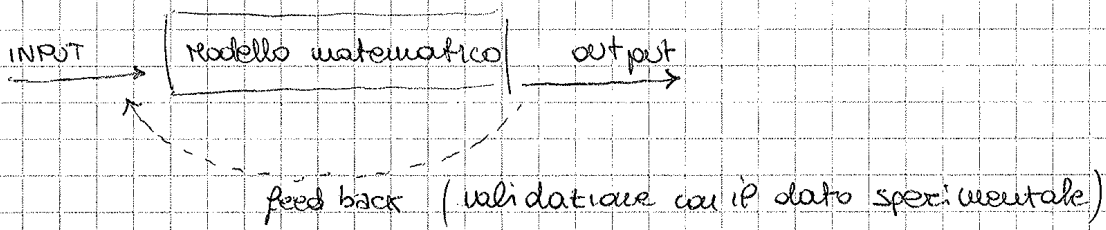 INPUT Modello matematico output
feed back (validazione con il dato sperimentale)